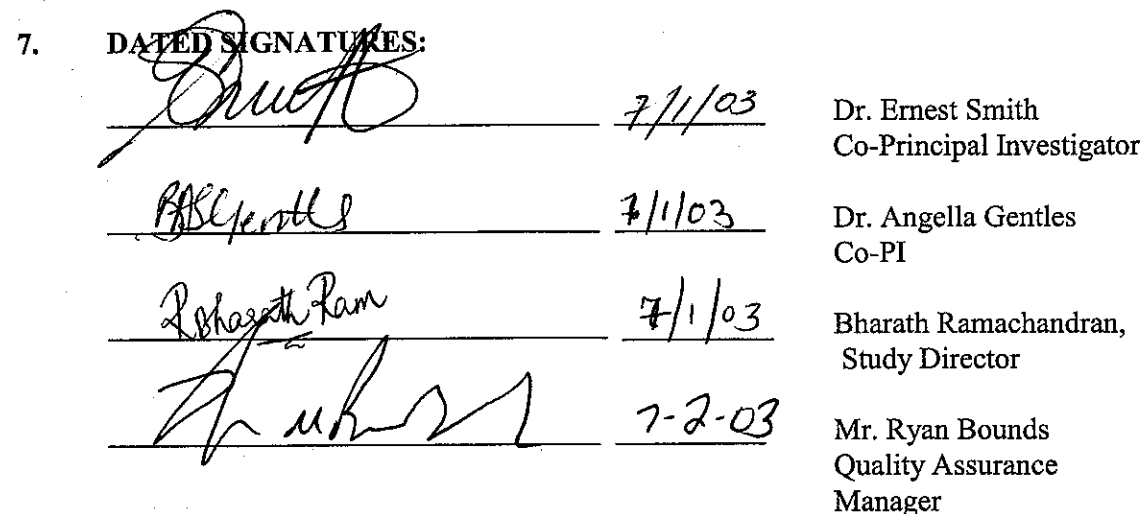 7. DATED SIGNATURES:
7/1/03 Dr. Ernest Smith
Co-Principal Investigator
7/1/03 Dr. Angella Gentles
Co-PI
RBharath Ram 7/1/03 Bharath Ramachandran,
Study Director
7-2-03 Mr. Ryan Bounds
Quality Assurance
Manager